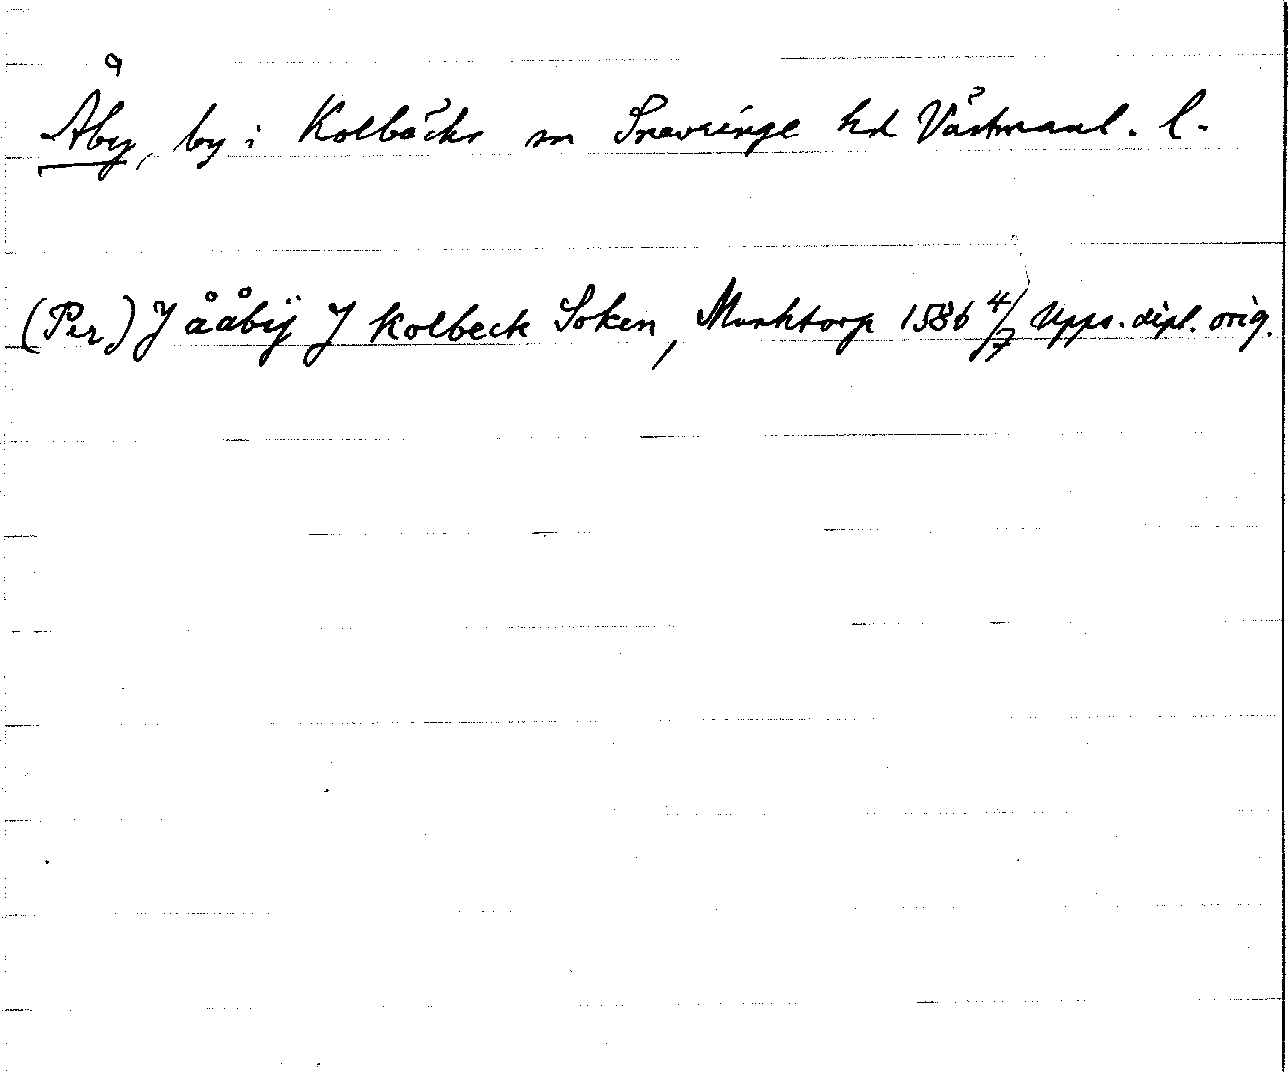 Åby, by i Kolbäcks sn Snevringe hd Västmanl. l.
(Per) J ååbÿ J Kolbeck Soken, Munktorp 1586 4/7 Upps. dipl. orig.